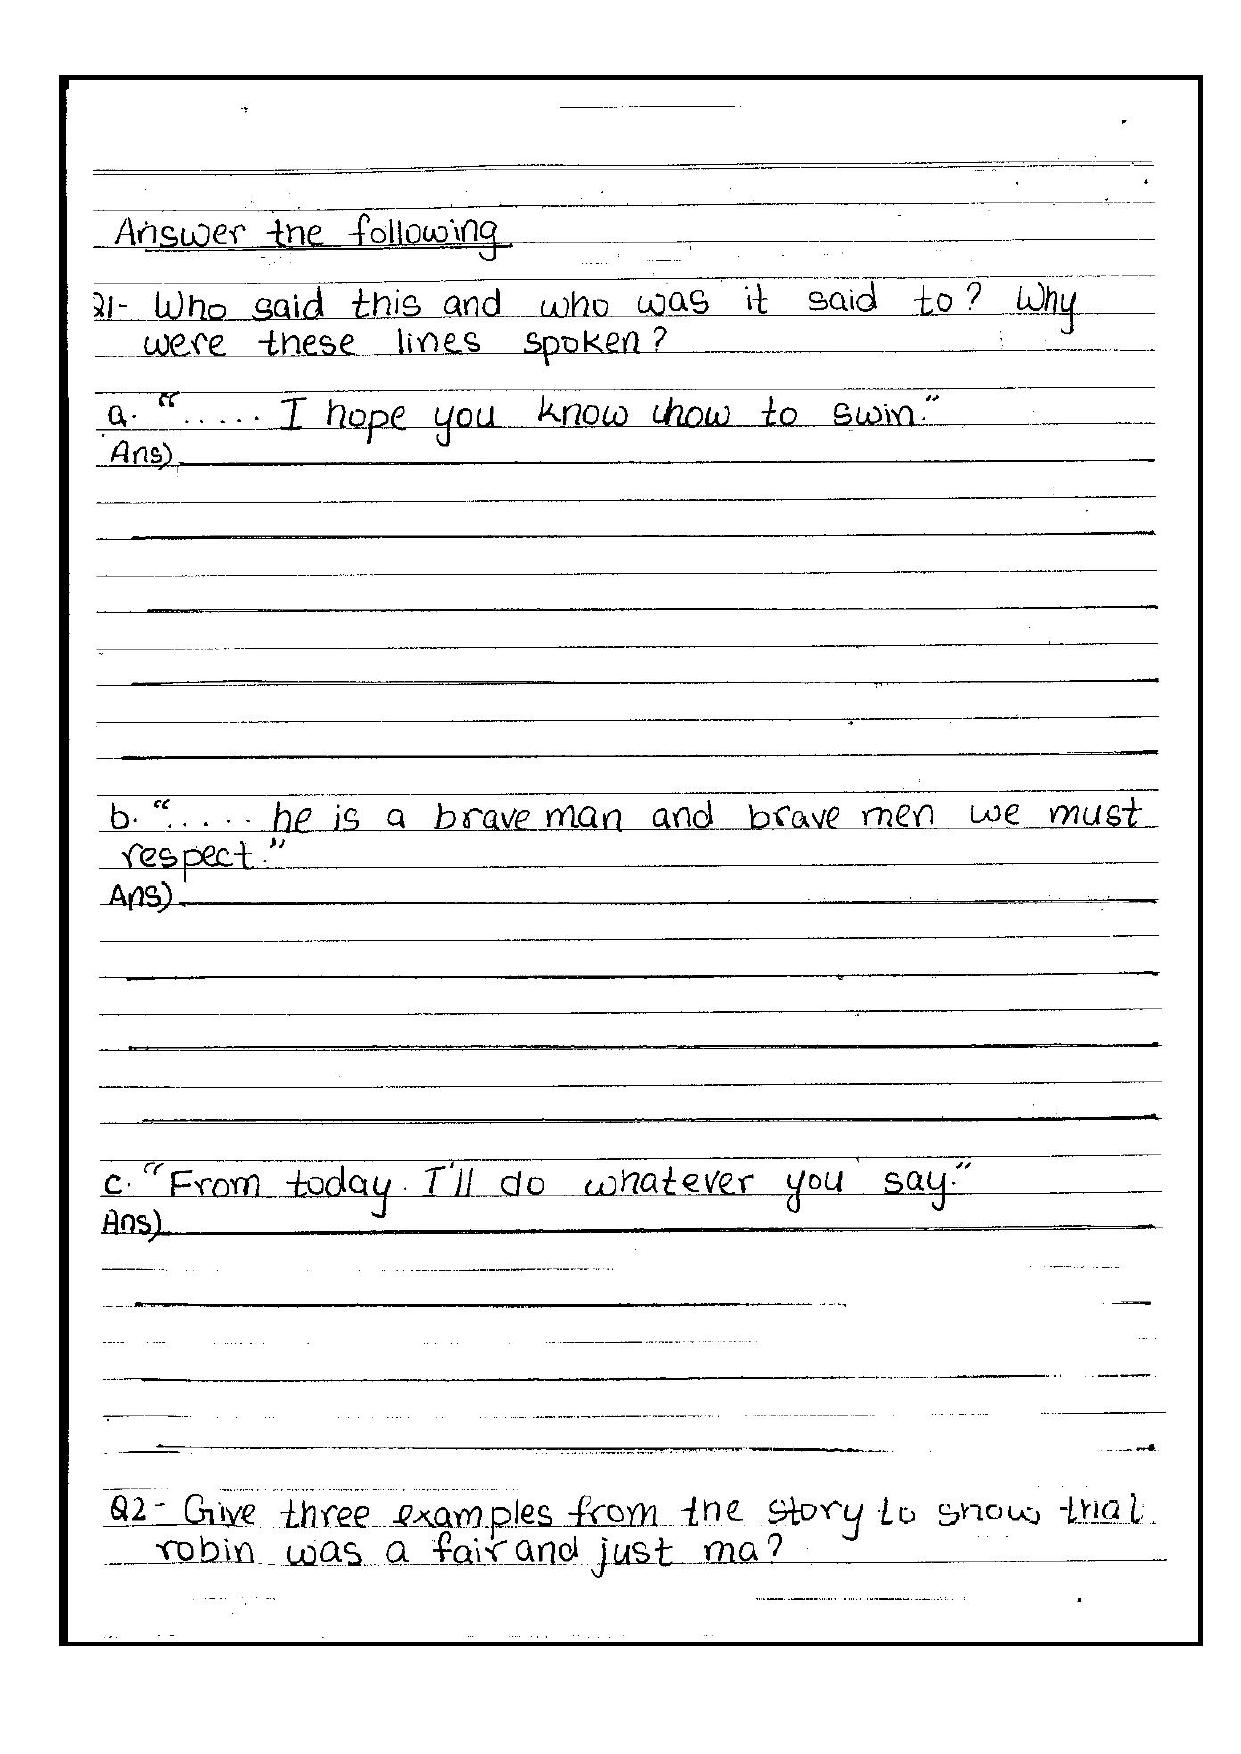 Answer the following
Q1- Who said this and who was it said to? Why
were these lines spoken?
a. "..... I hope you know how to swin."
Ans)
b. "..... he is a brave man and brave men we must
respect."
Ans)
c. "From today. I'll do whatever you say."
Ans)
Q2- Give three examples from the story to show that
robin was a fair and just ma?